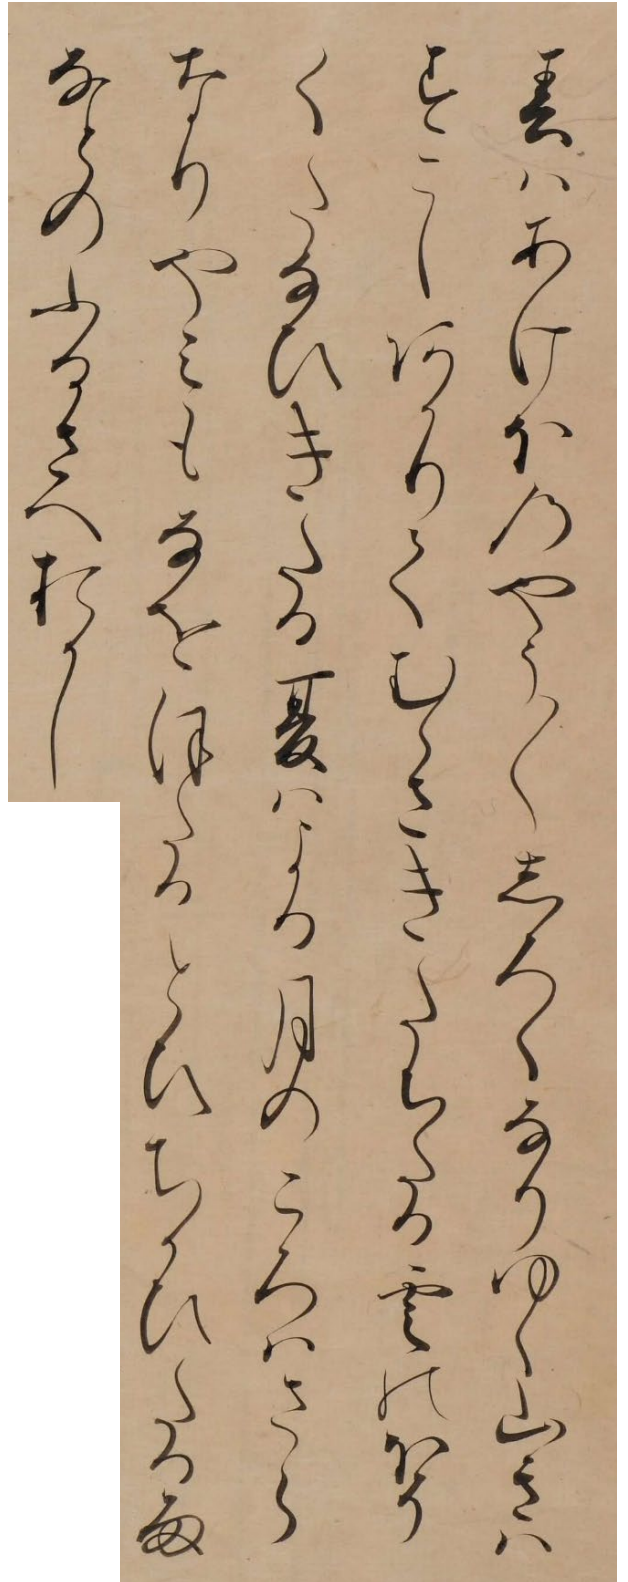 春はあけほのやう〳〵しろくなりゆく山きは
すこしあかりてむらさきたちたる雲のほそ
くたなひきたる夏はよる月のころはさら
なりやみもなをほたるとひちかひたる雨
なとのふるさへおかし